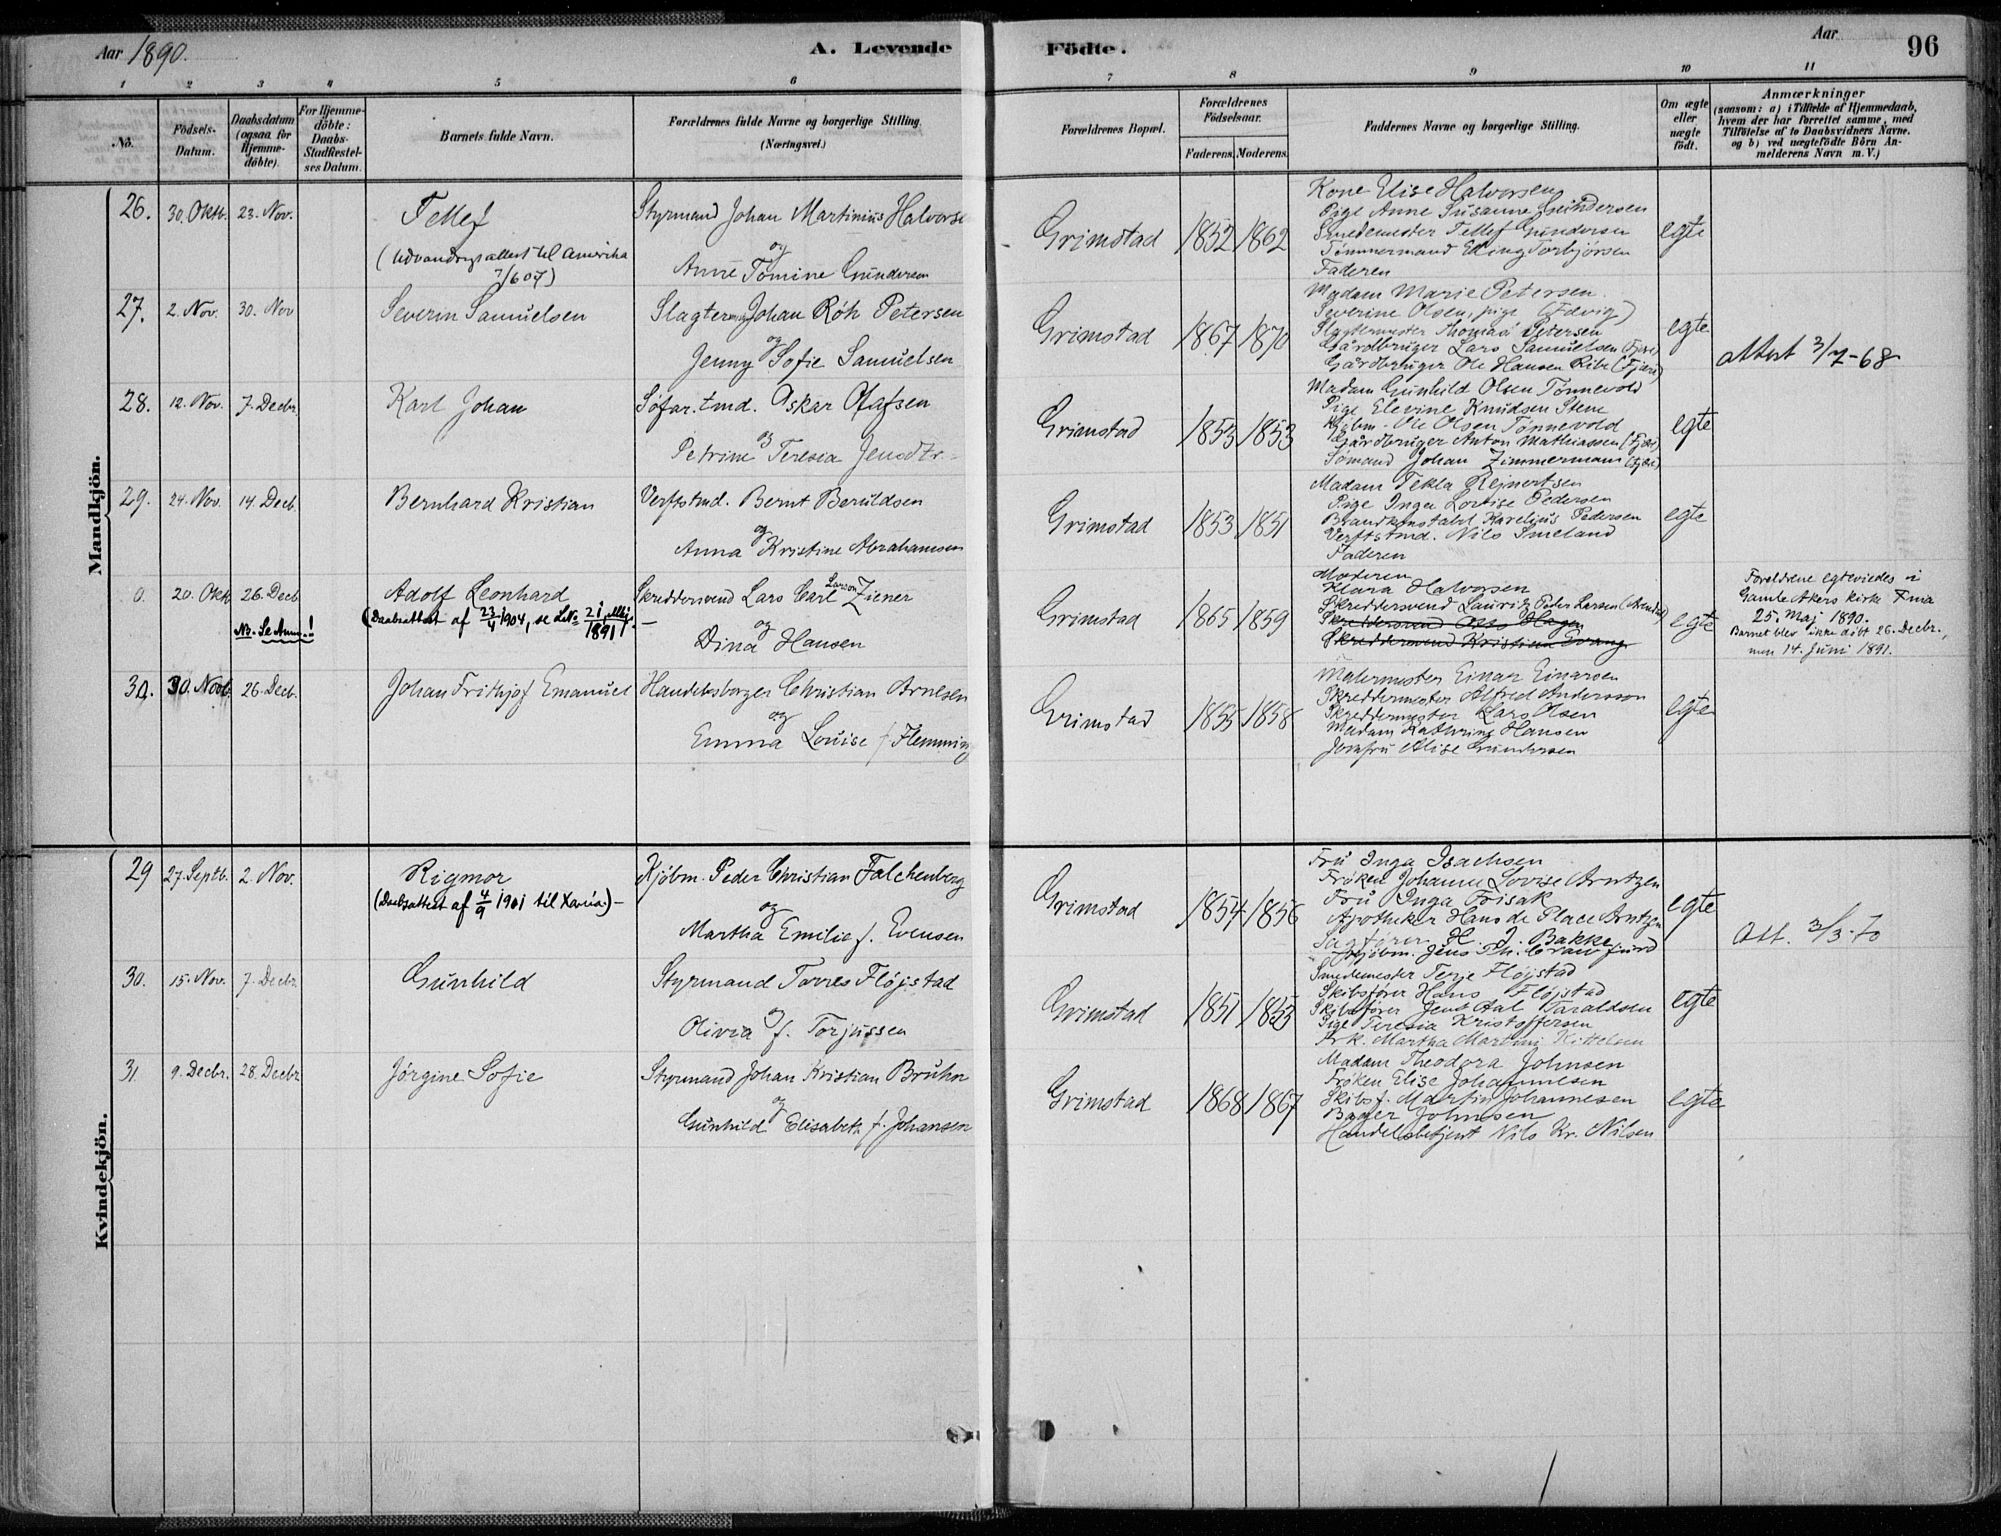 Aar 1890.
A. Levende
Födte.
Aar
96
1 2 3 4 5 6 7 8 9 10 11
No.
Födsels-Datum.
Daabsdatum (ogsaa for Hjemme-döbte).
For Hjemme-döbte: Daabs-Stadfæstel-ses Datum.
Barnets fulde Navn.
Forældrenes fulde Navne og borgerlige Stilling. (Næringsvei.)
Forældrenes Bopæl.
Forældrenes Födselsaar.
Faderens. Moderens.
Faddernes Navne og borgerlige Stilling.
Om ægte eller uægte födt.
Anmærkninger
(saasom: a) i Tilfælde af Hjemmedaab, hvem der har forrettet samme, med Tilföielse af to Daabsvidners Navne. og b) ved uægtefödte Börn An-melderens Navn m. V.)
Mandkjön.
26. 30. Oktb. 23. Nov. Tellef
(Udvandrngsattest til Amerika
7/6 07)
Styrmand Johan Martinius Halvorse
og
Anne Tomine Gundersen
Grimstad 1852 1862
Kone Elise Halvorsen
Pige Anne Susanne Gundersen
Smedemester Tellef Gundersen
Tömmermand Elling Torbjörsen
Faderen
egte
27. 2. Nov. 30. Nov Severin Samuelsen
Slagter Johan Röh Petersen
og
Jenny Sofie Samuelsen
Grimstad 1867 1870
Madam Marie Petersen.
Severine Olsen, pige
Slagtermester Thomas Petersen
Gårdbruger Lars Samuelsen (Fjære)
Gårdbruger Ole Hansen Ribe (Fjære)
egte
attest 3/7-68
28. 12. Nov. 7. Decbr. Karl Johan
Söfar. tmd. Oskar Olafsen
og
Petrine Teresia Jensdtr.
Grimstad 1853 1853
Madam Gunhild Olsen Tönnevold
Pige Elevine Knudsen Stene
Kjöbm. Ole Olsen Tönnevold
Gårdbruger Anton Mathiassen (Fjære)
Sömand Johan Zimmermann (Fjære)
egte
29. 24. Nov. 14. Decb. Bernhard Kristian
Verftstmd. Bernt Beruldsen
og
Anna Kristine Abrahamsen
Grimstad 1853 1851
Madam Tekla Rejnertsen
Pige Inga Lovise Pedersen
Brandkonstabel Karelius Pedersen
Verftstmd. Nils Smeland
Faderen
egte
0. 20. Oktb 26. Decb Adolf Leonhard
NB. Se Anm.!
(Daabsattest af 23/4 1904, se L№ 21, 1891)
Skreddersvend Lars Carl Larson Ziener
og
Dina Hansen
Grimstad 1865 1859
Moderen
Klara Halvorsen
Skreddersvend Lauritz Peder Larsen (Arendal)
Skreddersvend Otto Hagen
Skreddersvend Kristian Evang
egte
Foreldrene egteviedes i
Gamle Akers kirke
25. Maj 1890.
Barnet blev ikke döbt 26. Decbr.,
men 14. Juni 1891.
30. 30. Novb. 26. Decb. Johan Frithjof Emanuel
Handelsborger Christian Arnesen
og
Emma Louise f. Flemming
Grimstad 1855 1858
Malermester Einar Einarsen
Skreddermester Alfred Andersson
Skreddermester Lars Olsen
Madam Kathrine Hansen
Jomfru Alise Gundersen
egte
Kvindekjön.
29 27. Septb. 2. Nov. Rigmor
(Daabsattest af 4/9 1901 til Xania)
Kjöbm. Peder Christian Falchenberg
og
Martha Emilie f. Evensen
Grimstad 1854 1856
Fru Inga Isachsen
Fröken Johanne Lovise Arntzen
Fru Inga Frisak
Apotheker Hans de Place Arntzen
Sagförer H. J. Bakke
Kjöbm. Jens Th. Crawfurd
egte
Att. 3/3-70
30. 15. Nov. 7. Decbr. Gunhild
Styrmand Torres Flöjstad
og
Olivia f. Torjussen
Grimstad 1851 1853
Smedemester Terje Flöjstad
Skibsförer Hans Flöjstad
Skibsförer Jens Aal Taraldsen
Pige Teresia Kristoffersen
Frk. Martha Martini Kittelsen
egte
31. 9. Decbr. 28. Decbr Jörgine Sofie
Styrmand Johan Kristian Bruhn
og
Gunhild Elisabeth f. Johansen
Grimstad 1868 1867
Madam Theodora Johnsen
Fröken Elise Johannesen
Skibsf. Martin Johannesen
Bager Johnsen
Handelsbetjent Nils Kr. Nilsen
egte